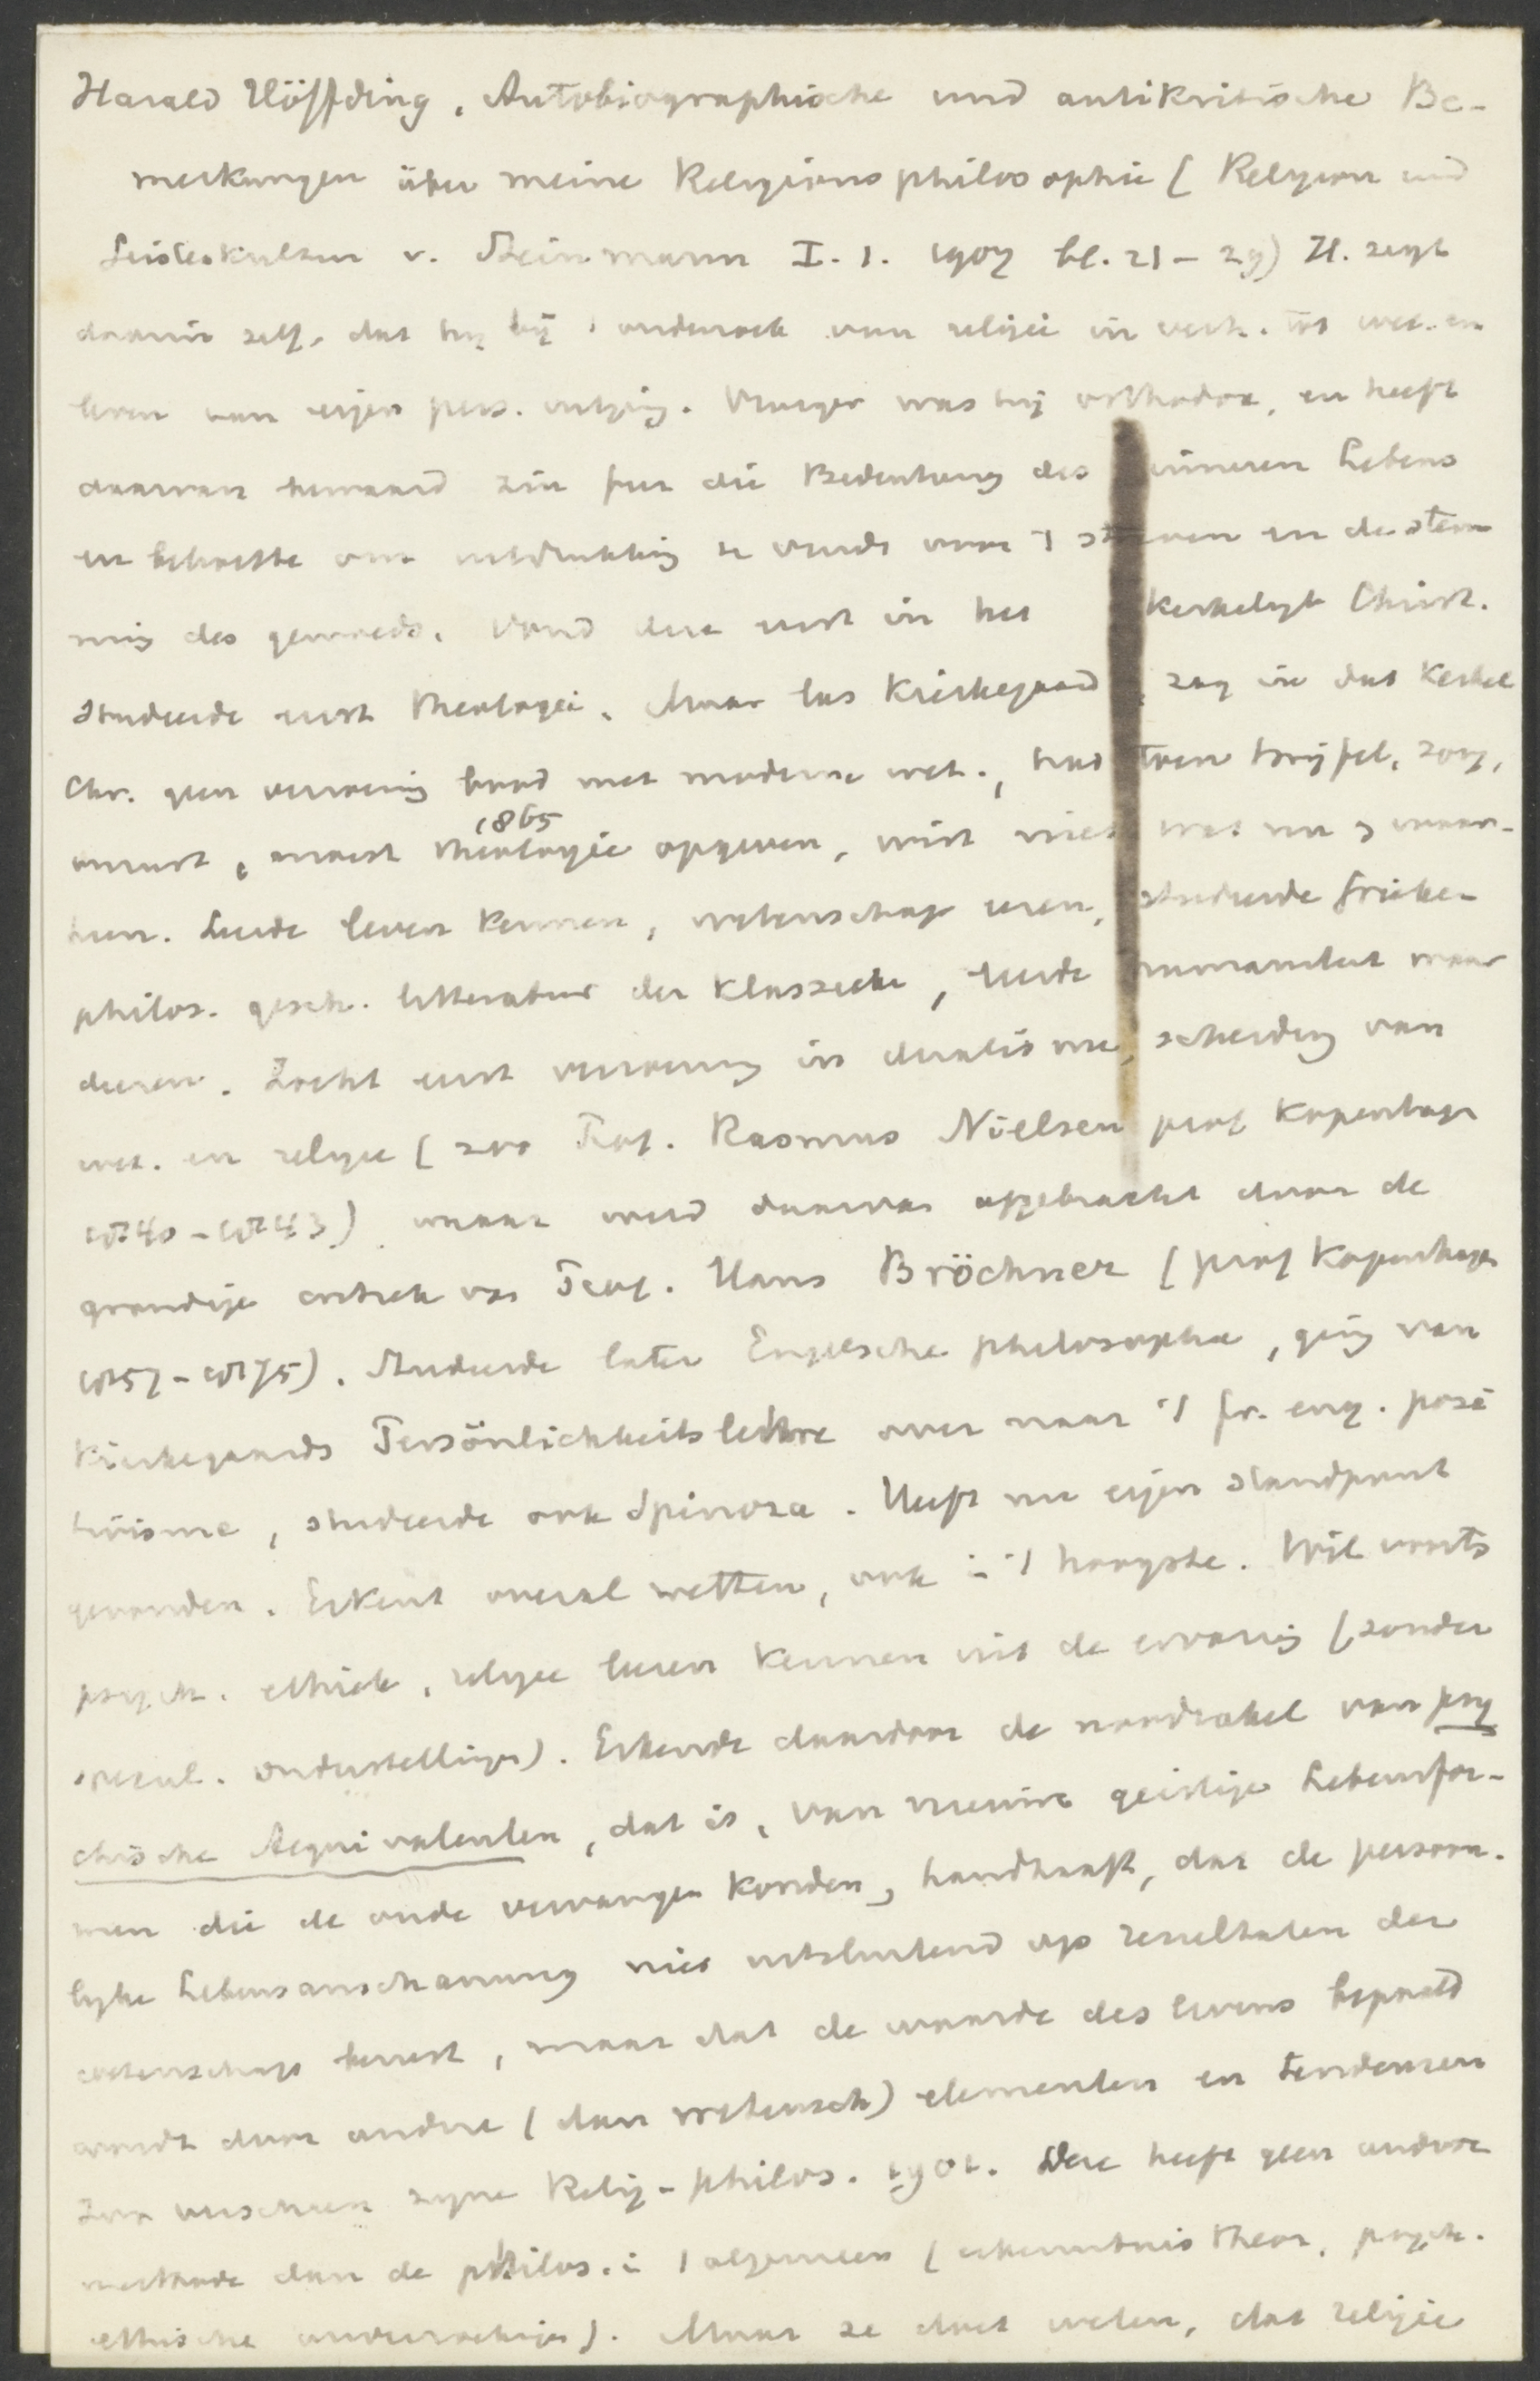 Harald Höffding, Autobiographische und antikritische Be-
merkungen über meine Religionsphilosophie (Religion und
Geisteskultur v. Steinmann I. 1. 1907 bl. 21-29) H. zegt
daarin zelf, dat hy bij 't onderzoek van religie in verh. tot wet. en
leven van eigen pers. uitging. Vroeger was hij orthodox, en heeft
daarvan bewaard zin für die Bedeutung des inneren Lebens
en behoefte om uitdrukking te vinden voor 't streven en de stem
ming des gemoeds. Vond deze eerst in het kerkelyk Christ.
studeerde eerst theologie. Maar las Kierkegaard, zag in dat kerkel
Chr. geen vereenig baar met moderne wet., had toen twijfel, zorg,
onrust, moest theologie 1865 opgeven, wist niet wat nu te waar-
Leerde leven kennen, wetenschap eeren, studeerde Grieken
philos. gesch. litteratuur der klassieke, leerde humaniteit waar
deeren. Zocht eerst verzoening in dualisme, scheiding van
wet. en religie (zoo Prof. Rasmus Nielsen prof Kopenhage
1840-1843) maar werd daarvan afgebracht door de
grondige critiek van Prof. Hans Bröchner (prof Kopenhage
1857-1875). Studeerde later Engelsche philosophie, ging van
Kierkegaards Persönlichkeitslehre over naar 't fr. eng. posi
tivisme, studeerde ook Spinoza. Heeft nu eigen standpunt
gevonden. Erkent overal wetten, ook in 't hoogste. Wil voorts
psych. ethiek, religie leeren kennen uit de ervaring (zonder
specul. onderstellingen). Erkende daardoor de noodzakel van psy
chische Aequivalenten, dat is, van nieuwe geistige Lebensfor-
men die de oude vervangen konden, handhaaft, dat de persoon-
lyke Lebensanschauung niet uitsluitend op resultaten der
wetenschap berust, maar dat de waarde des levens bepaald
wordt door andere (dan wetensch) elementen en tendenzen
Zoo verscheen zyne Relig-philos. 1901. Deze heeft geen andere
methode dan de philos. in 't algemeen (erkenntnistheor. psych.
ethische onderzoekingen). Maar ze doet weten, dat religie